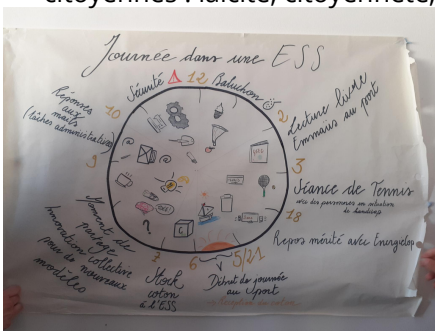 citoyennes : laïcité, citoyenneté,
Journée dans une ESS
Sécurité
12
Baluchon
2
Lecture livre
Emmaüs au port
3
Séance de Tennis
avec des personnes en situation
de handicap
18
Repos mérité avec Energicoop
5/21
Début de journée
au Sport
6
7
Stock
coton
à l'ESS
?
Moment de
partage
Innovations collective
pour de nouveaux
modèles
9
10
Réponses
aux
mails
(tâches administratives)